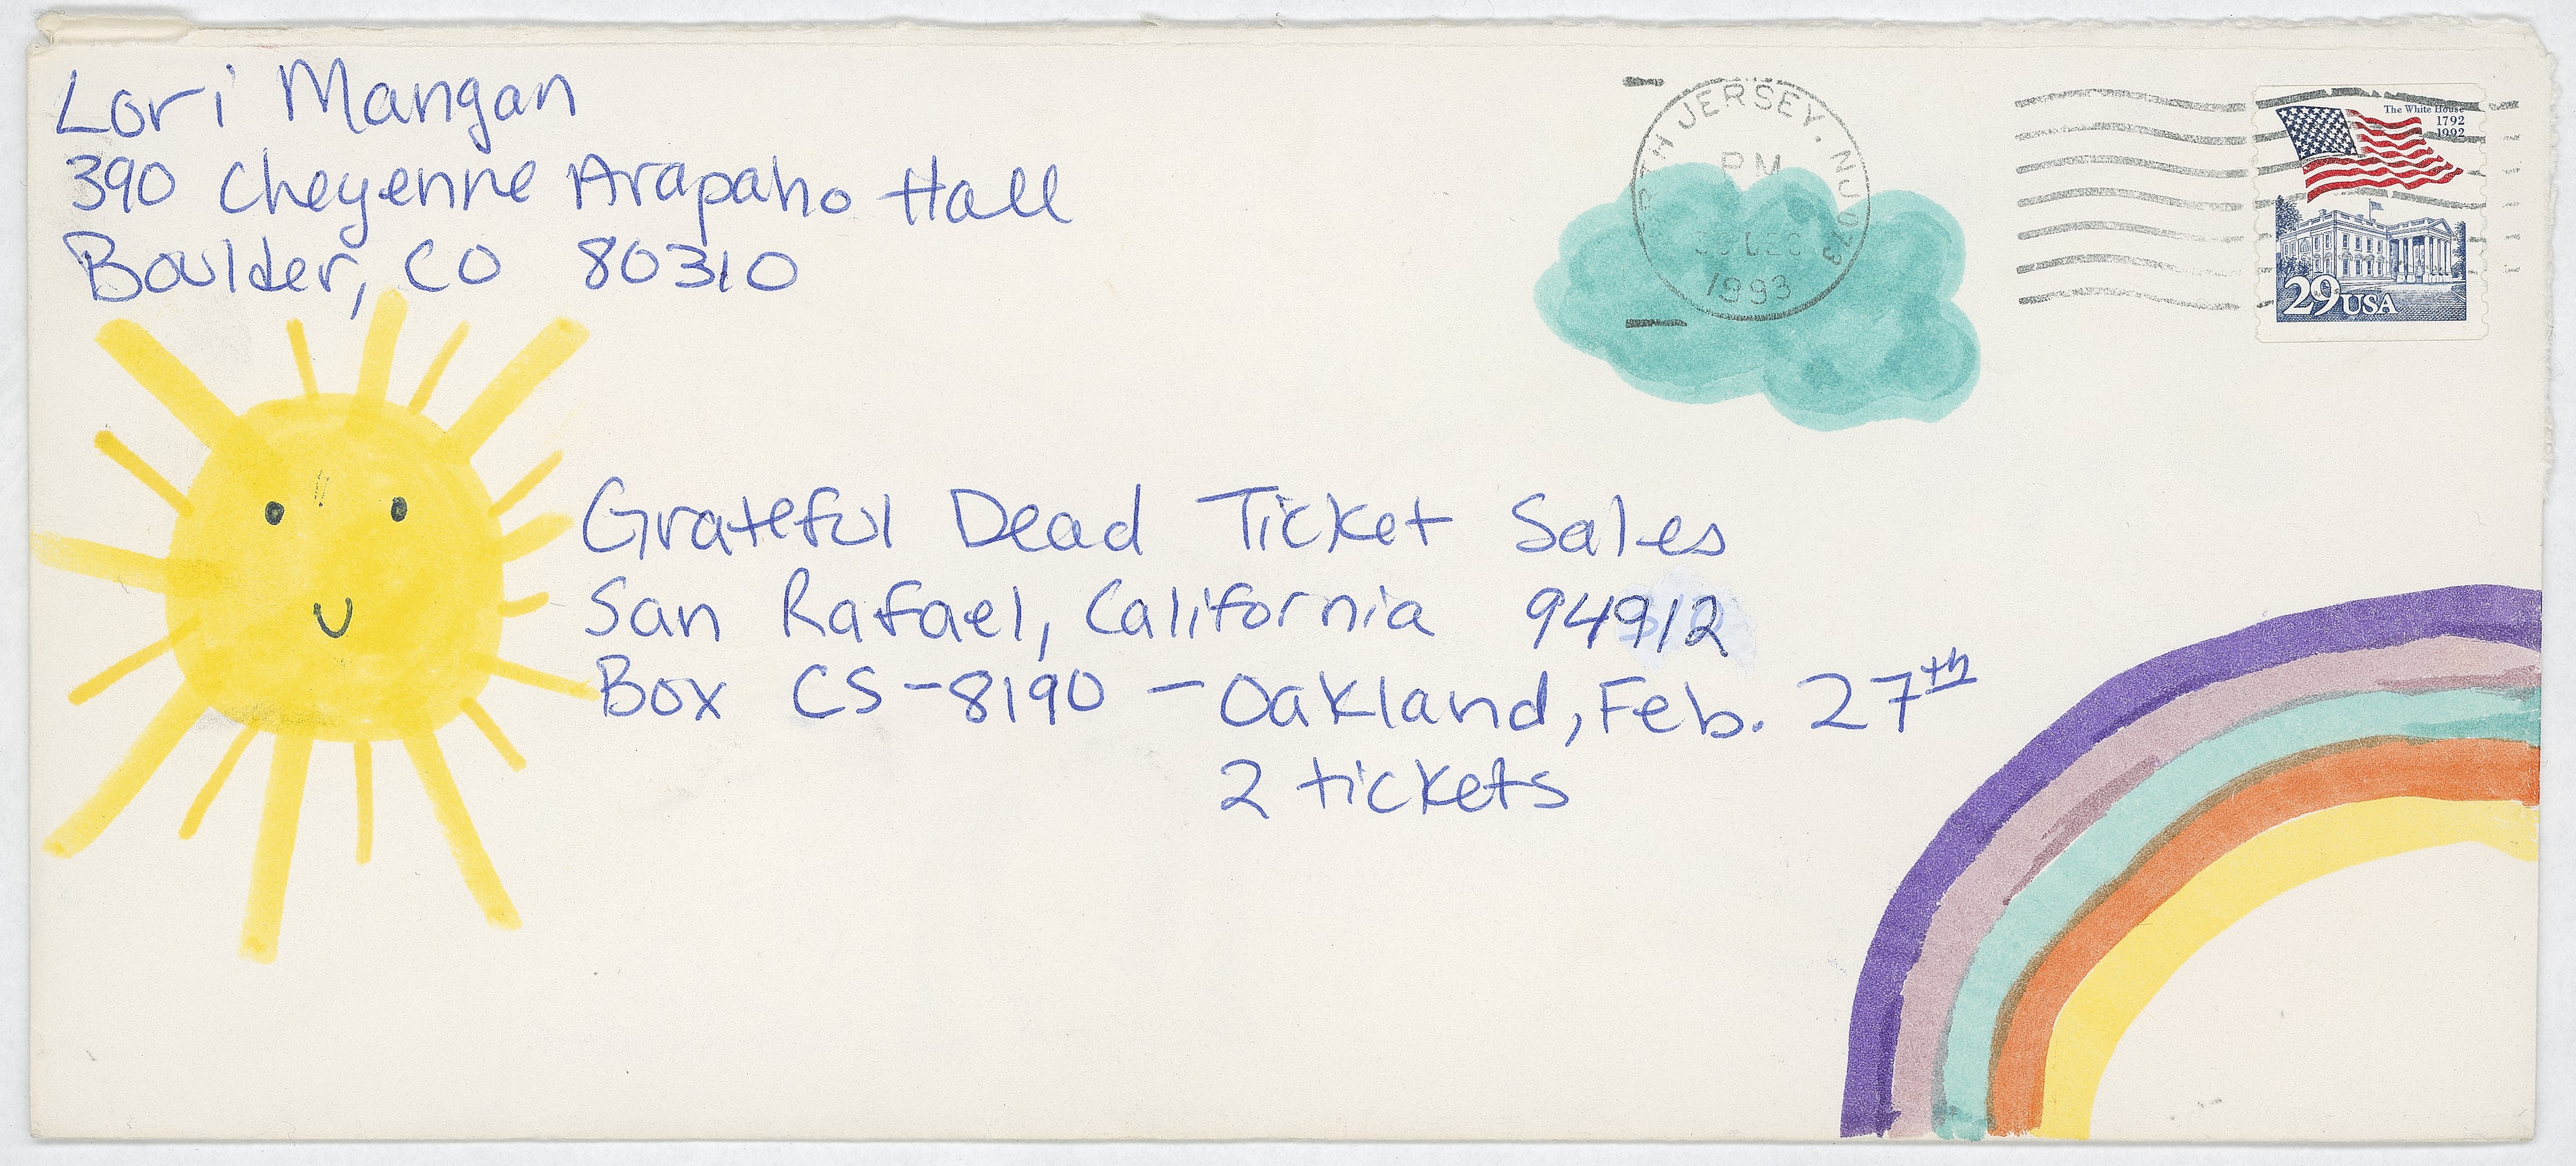 Lori Mangan
390 Cheyenne Arapaho Hall
Boulder, CO 80310
JERSEY, NJ 073
PM
1993
The White House
1792
1992
29 USA
Grateful Dead Ticket Sales
San Rafael, California 94912
Box CS-8190 - Oakland, Feb. 27th
2 tickets